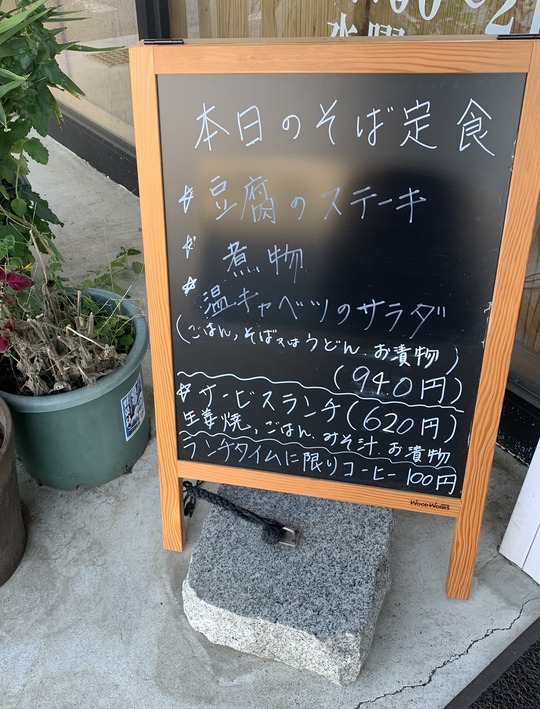 本日のそば定食
☆豆腐のステーキ
☆煮物
☆温キャベツのサラダ
(ごはん,そば又はうどん.お漬物)
(940円)
☆サービスランチ(620円)
生姜焼,ごはん.みそ汁.お漬物
ランチタイムに限りコーヒー100円
WoodWorks